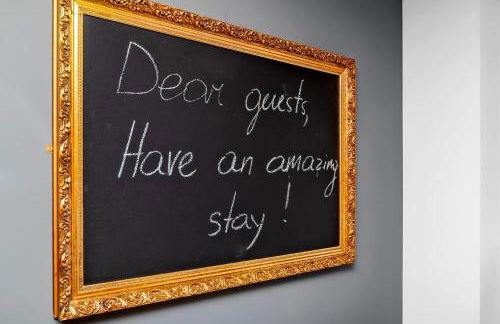 Dear guests,
Have an amazing
stay !